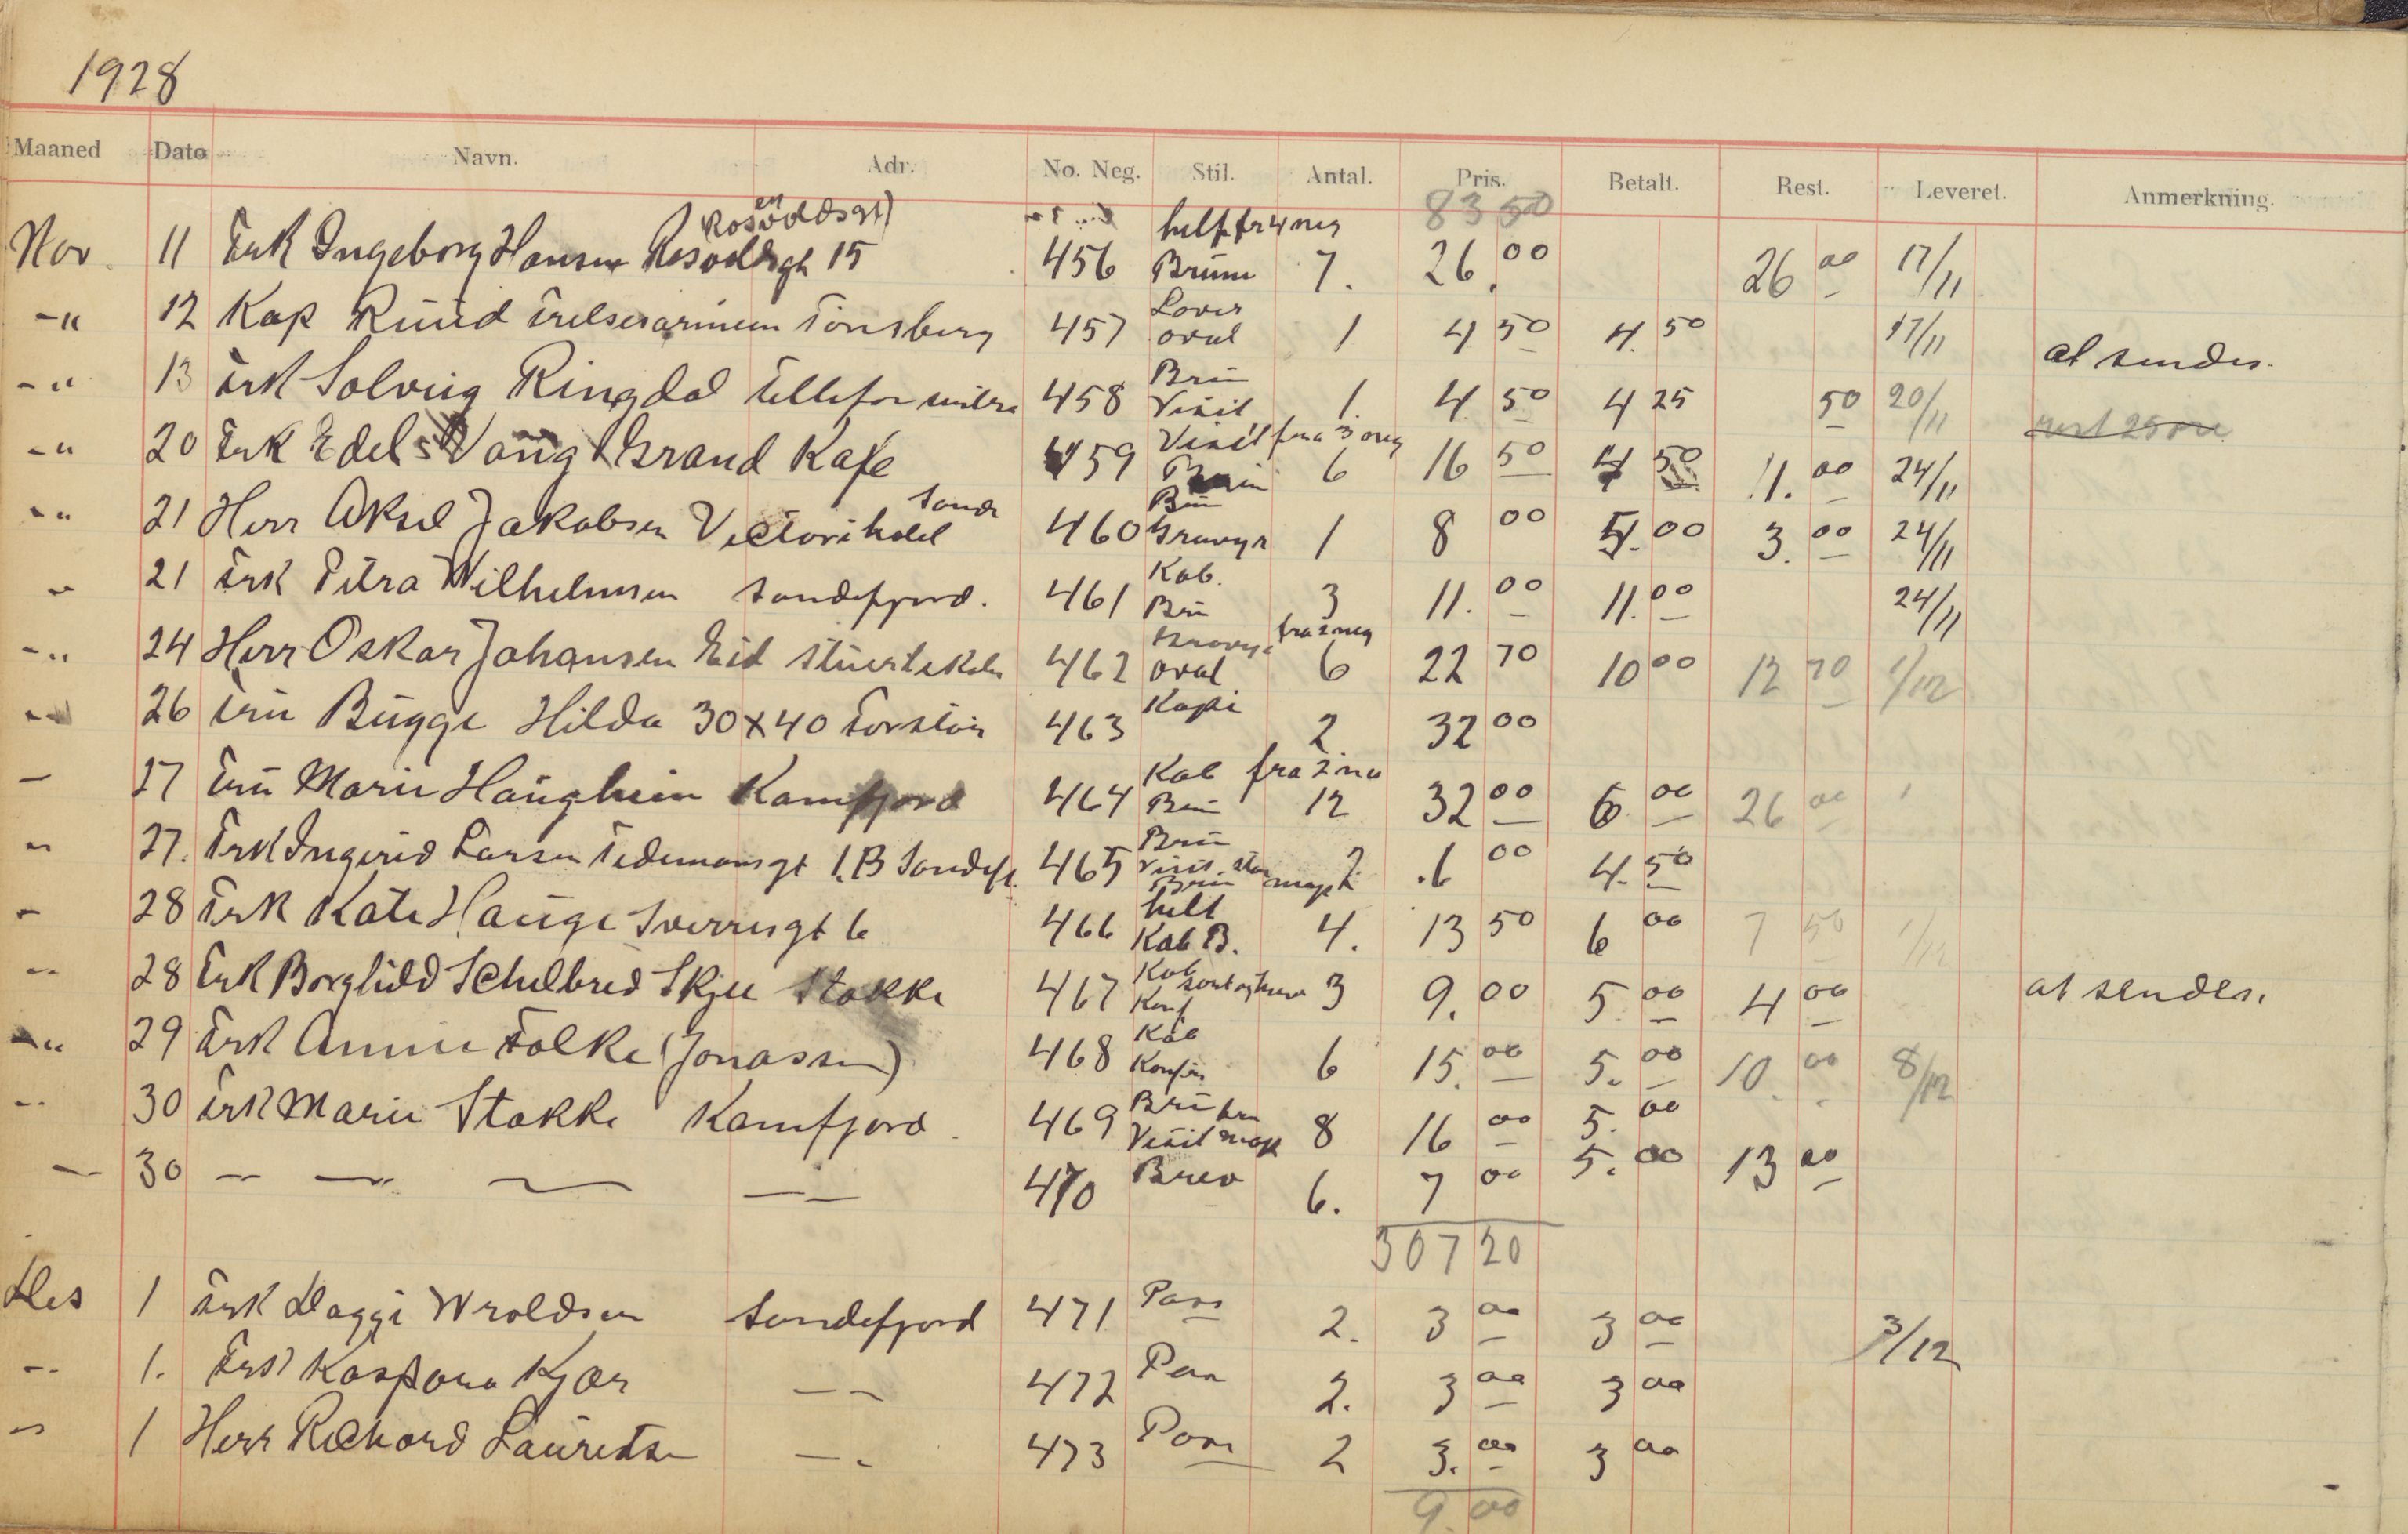 1928
Maaned Dato Navn. Adr. No. Neg. Stil. Antal. Pris. Betalt. Rest. Leveret. Anmerkning.
83 50
Rosenvoldsgt)
Nov 11 Frk Ingeborg Hansen 15 456 helf. fr 4 neg Brun 7. 26.00 26 00 17/11
-" 12 Kap Ruud Frelsesarmeen Tönsberg 457 oval 1 4 50 4.50 17/11 at sendes.
-" 13 Frk Solveig Ringdal 458 Brun Visit 1. 4 50 4 25 50 20/11 rest 25 öre
-" 20 Frk Edel Vang Grand Kafe 459 Visit fra 3 neg Brun 6 16 50 4 50 11.00 24/11
-" 21 Herr Aksel Jakobsen Victorihotel Sande 460 Brun Gravyr 1 8 00 5.00 3.00 24/11
-" 21 Frk Petra Wilhelmsen Sandefjord. 461 Kab. Brun 3 11.00 11.00 24/11
-" 24 Herr Oskar Johansen Eid 462 Gravyr fra 2 neg oval 6 22 70 10 00 12 70 1/12
-" 26 Fru Bugge Hilda 30x40 Forstör 463 Kopi 2. 32 00
- 27 Fru Marie Haughem Kamfjord 464 Kab fra 2 neg Brun 12 32 00 6 00 26 00
-" 27. Frk Ingerid Larsen Tidemansgt 1.B Sandefj. 465 Brun Visit. 2 .6 00 4.50
- 28 Frk Kate Hauge Sverresgt 6 466 helt Kab B. 4. 13 50 6 00 7 50
-" 28 Frk Borghild Schelbred Skjee Stokke 467 Kab Konf 3 9.00 5 00 4 00 at sendes.
-" 29 Frk Annie Folke (Jonassen) 468 Kab Konfir 6 15.00 5.00 10.00 8/12
-" 30 Frk Marie Stokke Kamfjord 469 Brun Visit map 8 16 00 5.00
- 30 - - - - 470 Brev 6. 7 00 5.00 13 00
307 20
Des 1 Frk Daggi Wroldsen Sandefjord 471 Pass 2. 3 00 3 00 3/12
-" 1. Frk Kaspara Kjær -- 472 Pass 2. 3 00 3 00
-" 1 Herr Richard Lauritsen -- 473 Pass 2 3.00 3 00
9.00